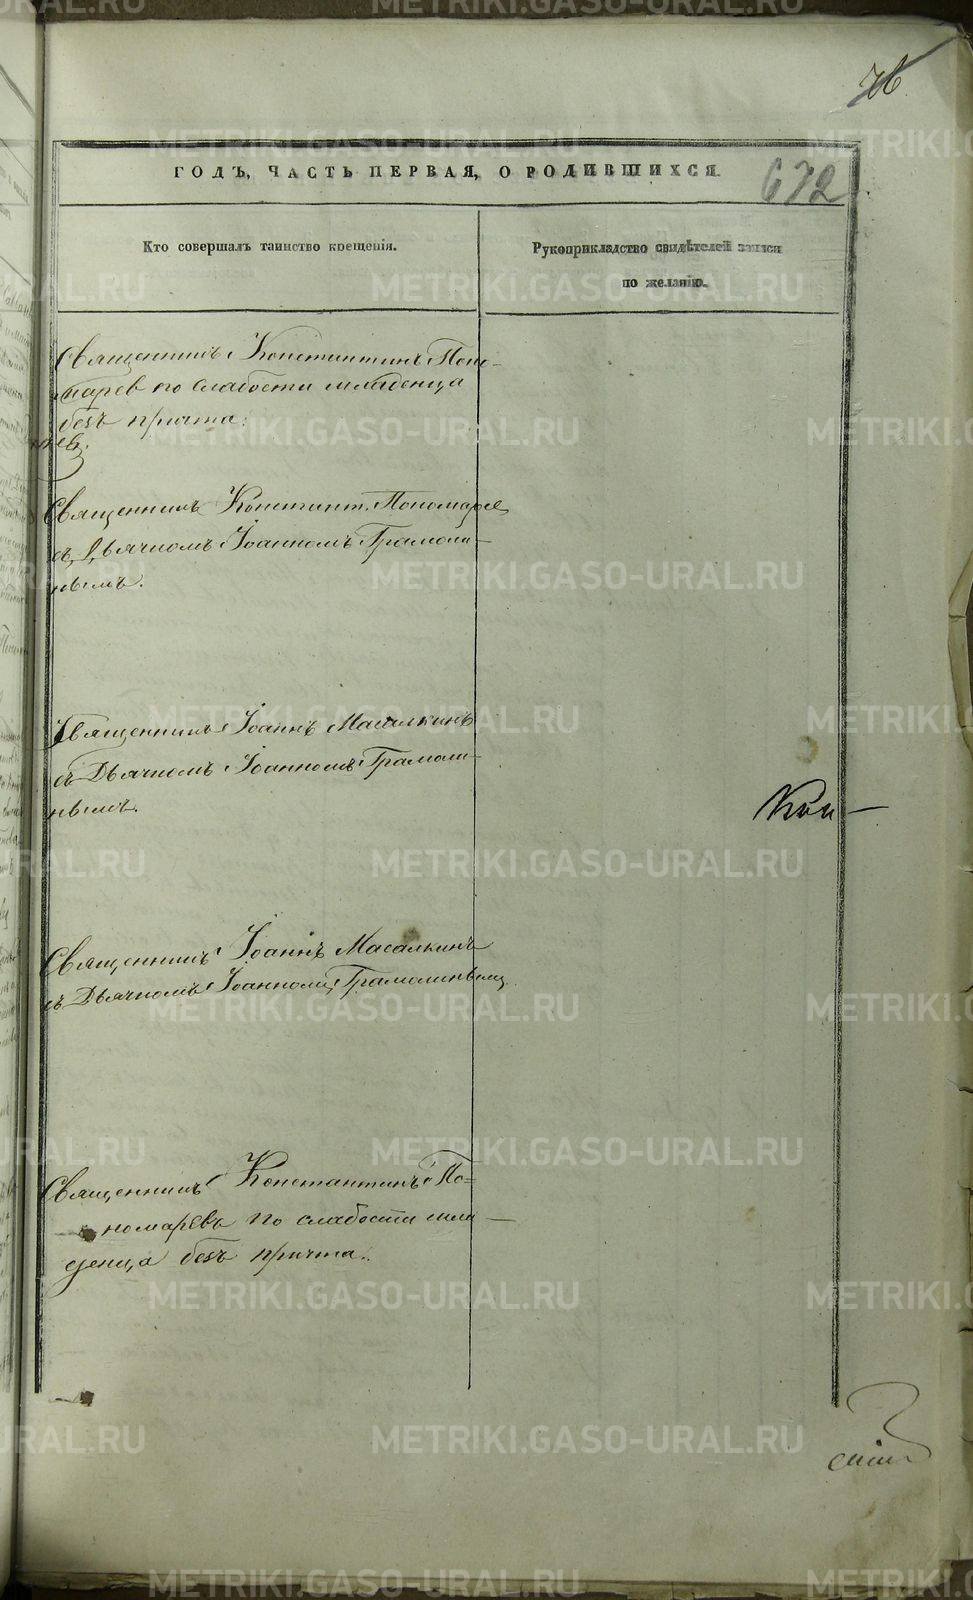 76
ГОДЪ, ЧАСТЬ ПЕРВАЯ, О РОДИВШИХСЯ.
672
Кто совершалъ таинство крещенія.
Рукоприкладство свидѣтелей записи
по желанію.
Священникъ Константинъ Поно-
марев по слабости младенца
безъ причта.
Священникъ Констант. Пономарев
съ Дьячкомъ Іоанномъ Грамоли-
нымъ.
Священникъ Іоаннъ Масалкинъ
съ Дьячкомъ Іоанномъ Грамоли-
нымъ.
Кон-
Священникъ Іоаннъ Масалкинъ
съ Дьячкомъ Іоанномъ Грамолинымъ
Священникъ Константинъ По-
номаревъ по слабости мла-
денца безъ причта.
METRIKI.GASO-URAL.RU